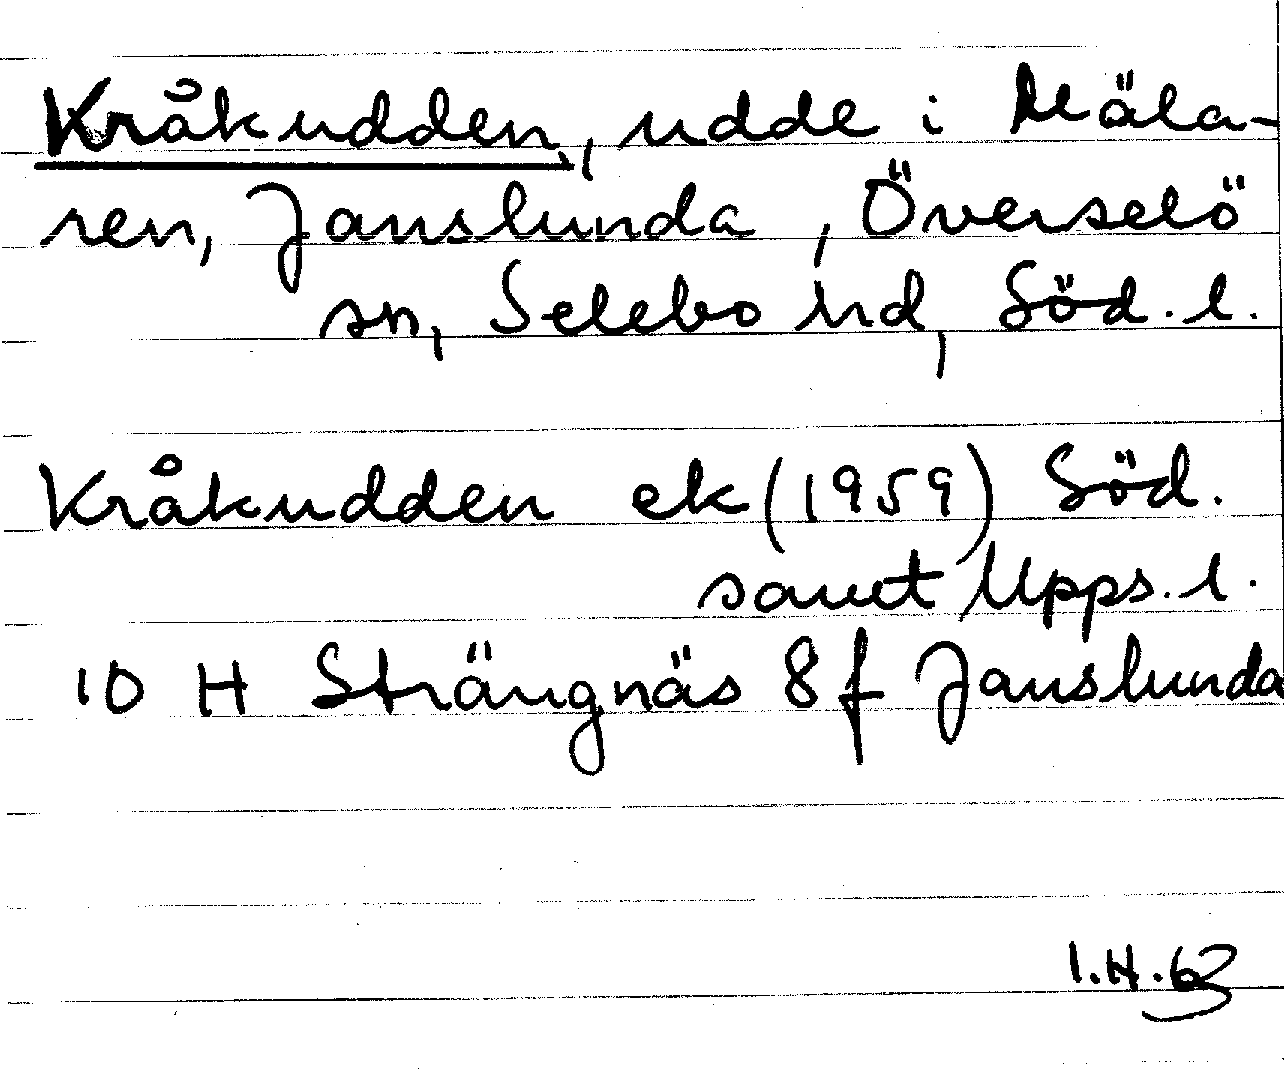 Kråkudden, udde i Mäla-
ren, Janslunda, Överselö
sn, Selebo hd, Söd. l.
Kråkudden ek (1959) Söd.
samt Upps. l.
10 H Strängnäs 8 f Janslunda
I.H. 63